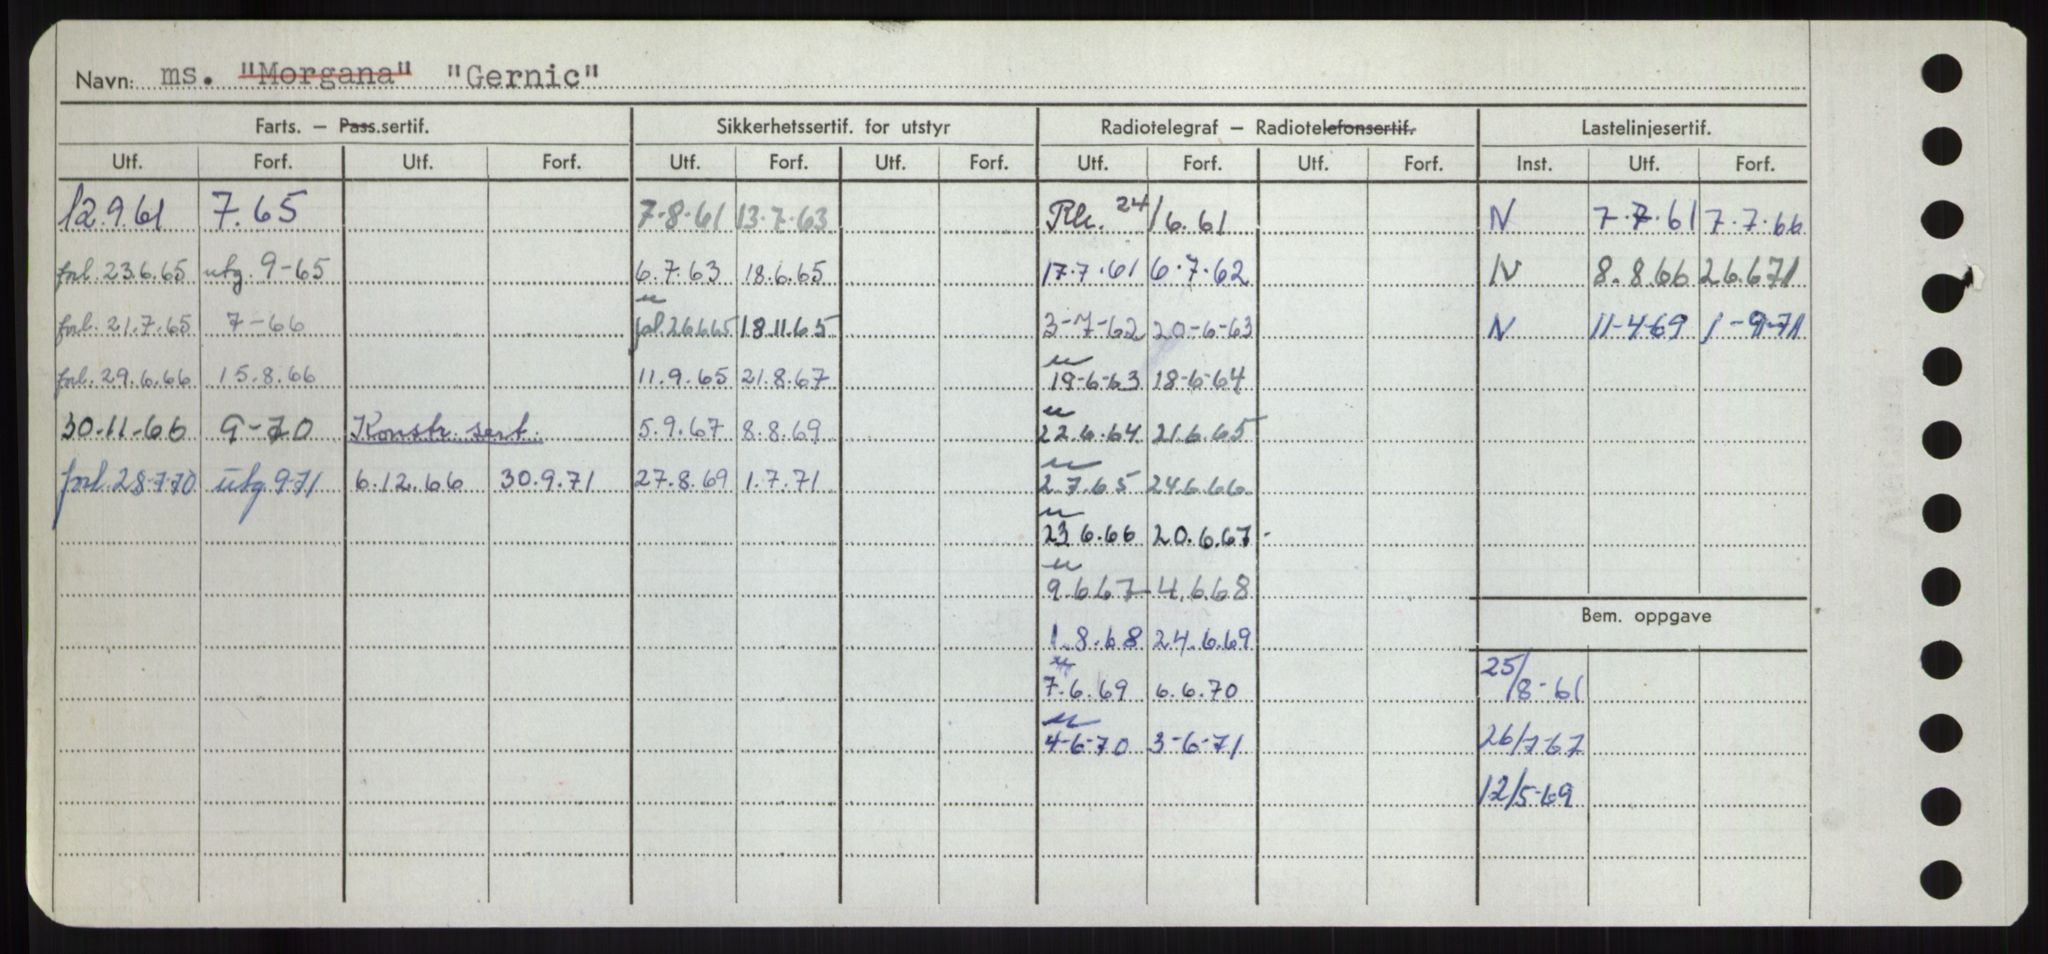 Navn: ms. "Morgana" "Gernic"
Farts. – Pass.sertif. Sikkerhetssertif. for utstyr Radiotelegraf – Radiotelefonsertif. Lastelinjesertif.
Utf. Forf. Utf. Forf. Utf. Forf. Utf. Forf. Utf. Forf. Utf. Forf. Inst. Utf. Forf.
12.9.61 7.65 7-8-61 13.7.63 Rk. 24/6.61 N 7.7.61 7.7.66
forl. 23.6.65 utg. 9-65 6.7.63 18.6.65 17.7.61 6.7.62 N 8.8.66 26.6.71
forl. 21.7.65 7-66 forl. 26.6.65 18.11.65 3-7-62 20-6-63 N 11-4-69 1-9-71
forl. 29.6.66 15.8.66 11.9.65 21.8.67 19-6-63 18-6-64
30-11-66 9-70 Konstr. sert. 5.9.67 8.8.69 22.6.64 21.6.65
forl. 28-7-70 utg. 9-71 6.12.66 30.9.71 27.8.69 1.7.71 2.7.65 24.6.66
23.6.66 20.6.67
9.6.67 4.6.68
Bem. oppgave
1.8.68 24.6.69
7.6.69 6.6.70 25/8-61
4-6-70 3-6-71 26/7-67
12/5-69